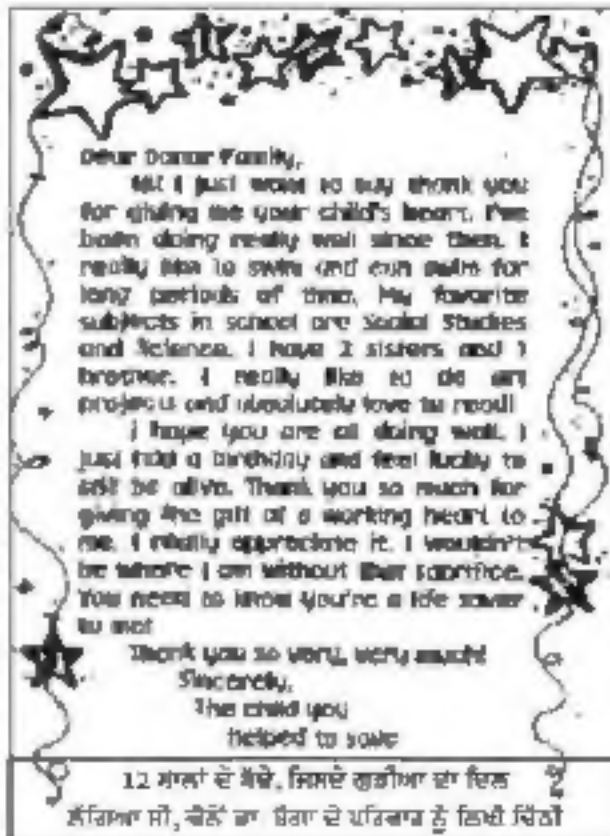 Dear Donor Family,
Hi! I just want to say thank you
for giving me your child's heart. I've
been doing really well since then. I
really like to swim and can swim for
long periods of time. My favorite
subjects in school are Social Studies
and Science. I have 2 sisters and 1
brother. I really like to do art
projects and absolutely love to read!
I hope you are all doing well. I
just had a birthday and feel lucky to
still be alive. Thank you so much for
giving the gift of a working heart to
me. I really appreciate it. I wouldn't
be where I am without that sacrifice.
You need to know you're a life saver
to me!
Thank you so very, very much!
Sincerely,
The child you
helped to save
12 ਸਾਲਾਂ ਦੇ ਬੱਚੇ, ਜਿਸਦੇ ਗੁੜੀਆ ਦਾ ਦਿਲ
ਲੱਗਿਆ ਸੀ, ਵੱਲੋਂ ਡਾ. ਬੱਗਾ ਦੇ ਪਰਿਵਾਰ ਨੂੰ ਲਿਖੀ ਚਿੱਠੀ